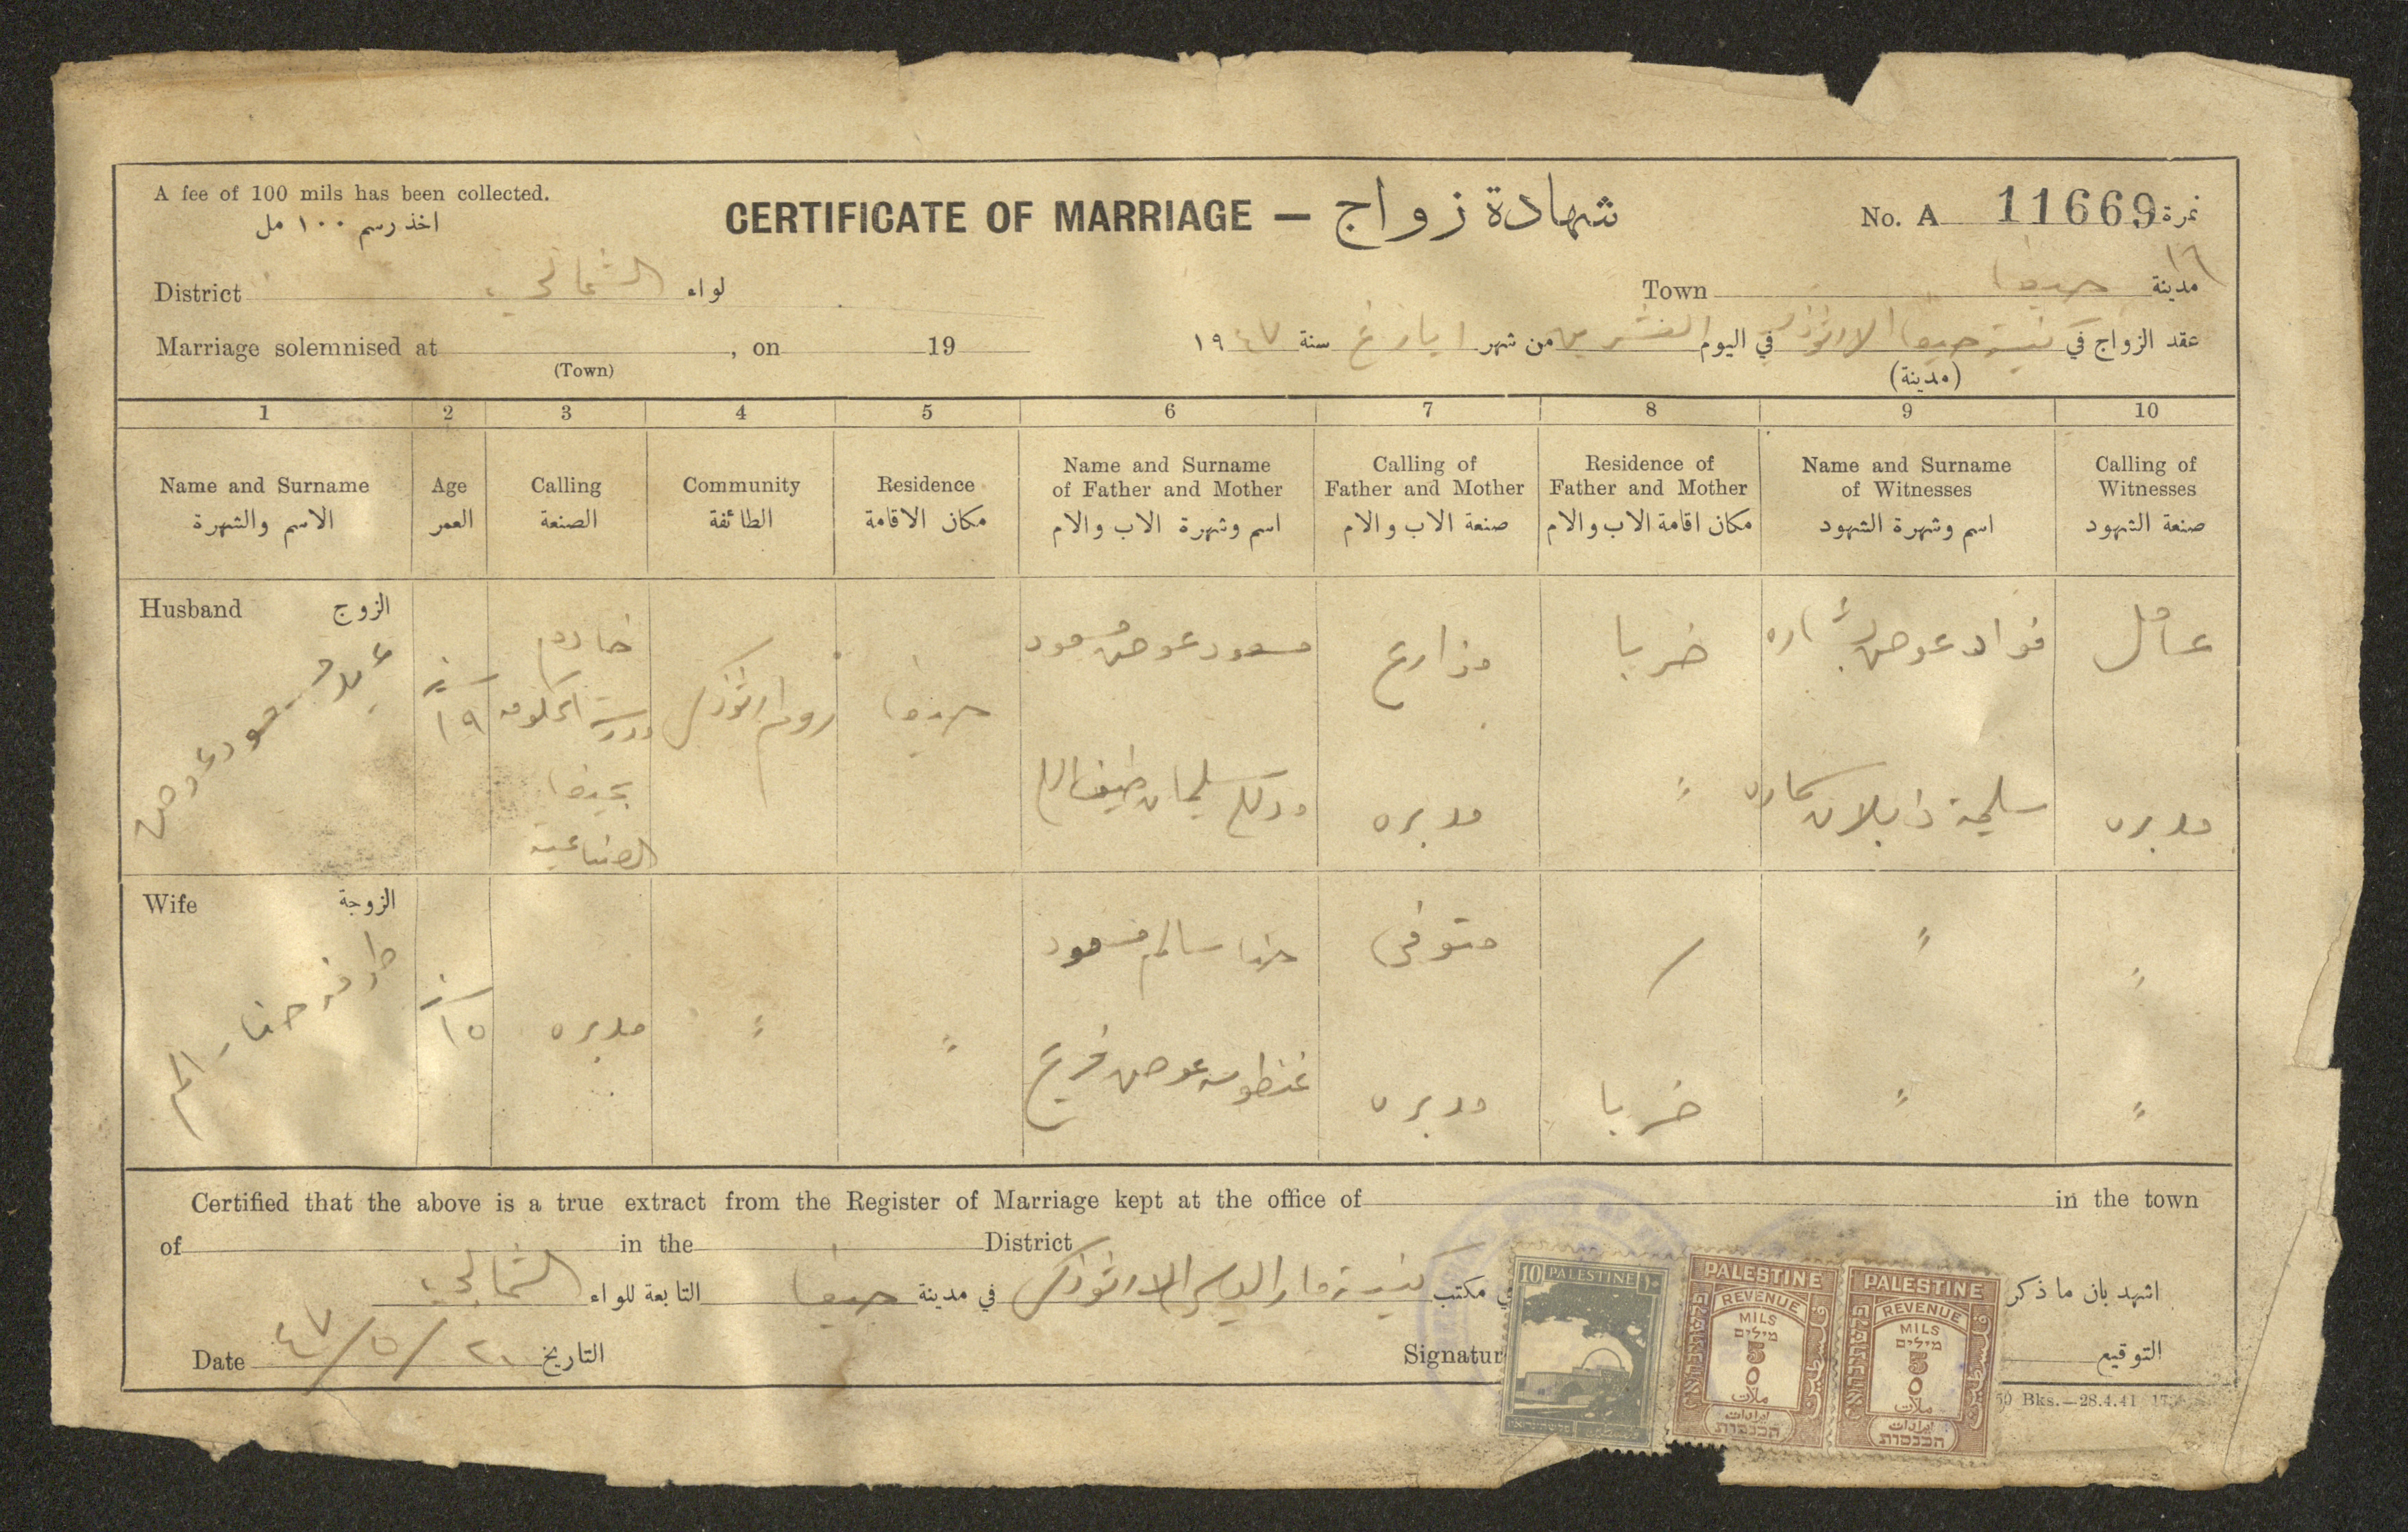 A fee of 100 mils has been collected.
اخذ رسم ١٠٠ مل
CERTIFICATE OF MARRIAGE — شهادة زواج
No. A 11669 نمرة
١٦
District الشمالي لواء
Town حيفا مدينة
Marriage solemnised at , on 19
(Town)
عقد الزواج في كنيسة حيفا الارثوذكس في اليوم العشرين من شهر ايار سنة ١٩٤٧
(مدينة)
1 2 3 4 5 6 7 8 9 10
Name and Surname
الاسم والشهرة
Age
العمر
Calling
الصنعة
Community
الطائفة
Residence
مكان الاقامة
Name and Surname
of Father and Mother
اسم وشهرة الاب والام
Calling of
Father and Mother
صنعة الاب والام
Residence of
Father and Mother
مكان اقامة الاب والام
Name and Surname
of Witnesses
اسم وشهرة الشهود
Calling of
Witnesses
صنعة الشهود
Husband الزوج
مسعود عوض
سنة
١٩
خادم
مدرسة الحكومة
بحيفا
الصناعية
روم ارثوذكس
حيفا
مسعود عوض مسعود
سليمان
مزارع
مدبره
خربا
"
فواد عوض بشاره
سليمة
عامل
مدبره
Wife الزوجة
حنا سالم
سنة
١٥
مدبره
"
"
حنا سالم مسعود
عوض فريح
متوفي
مدبره
/
خربا
"
"
"
"
Certified that the above is a true extract from the Register of Marriage kept at the office of in the town
of in the District
اشهد بان ما ذكر في مكتب كنيسة مار الياس الارثوذكس في مدينة حيفا التابعة للواء الشمالي
Date ٤٧/٥/٢٠ التاريخ
Signatur التوقيع
10 PALESTINE ١٠
PALESTINE
REVENUE
MILS
מילים
5
٥
ملات
ايرادات
הכנסות
PALESTINE
REVENUE
MILS
מילים
5
٥
ملات
ايرادات
הכנסות
Bks.—28.4.41